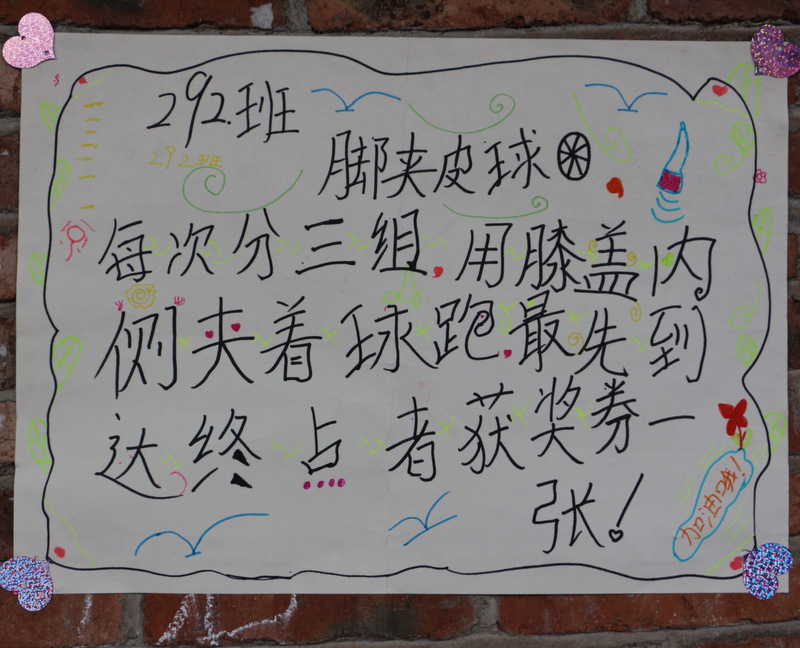 292班
292班
脚夹皮球
每次分三组,用膝盖内
侧夹着球跑,最先到
达终点者获奖券一
张!
加油哦!